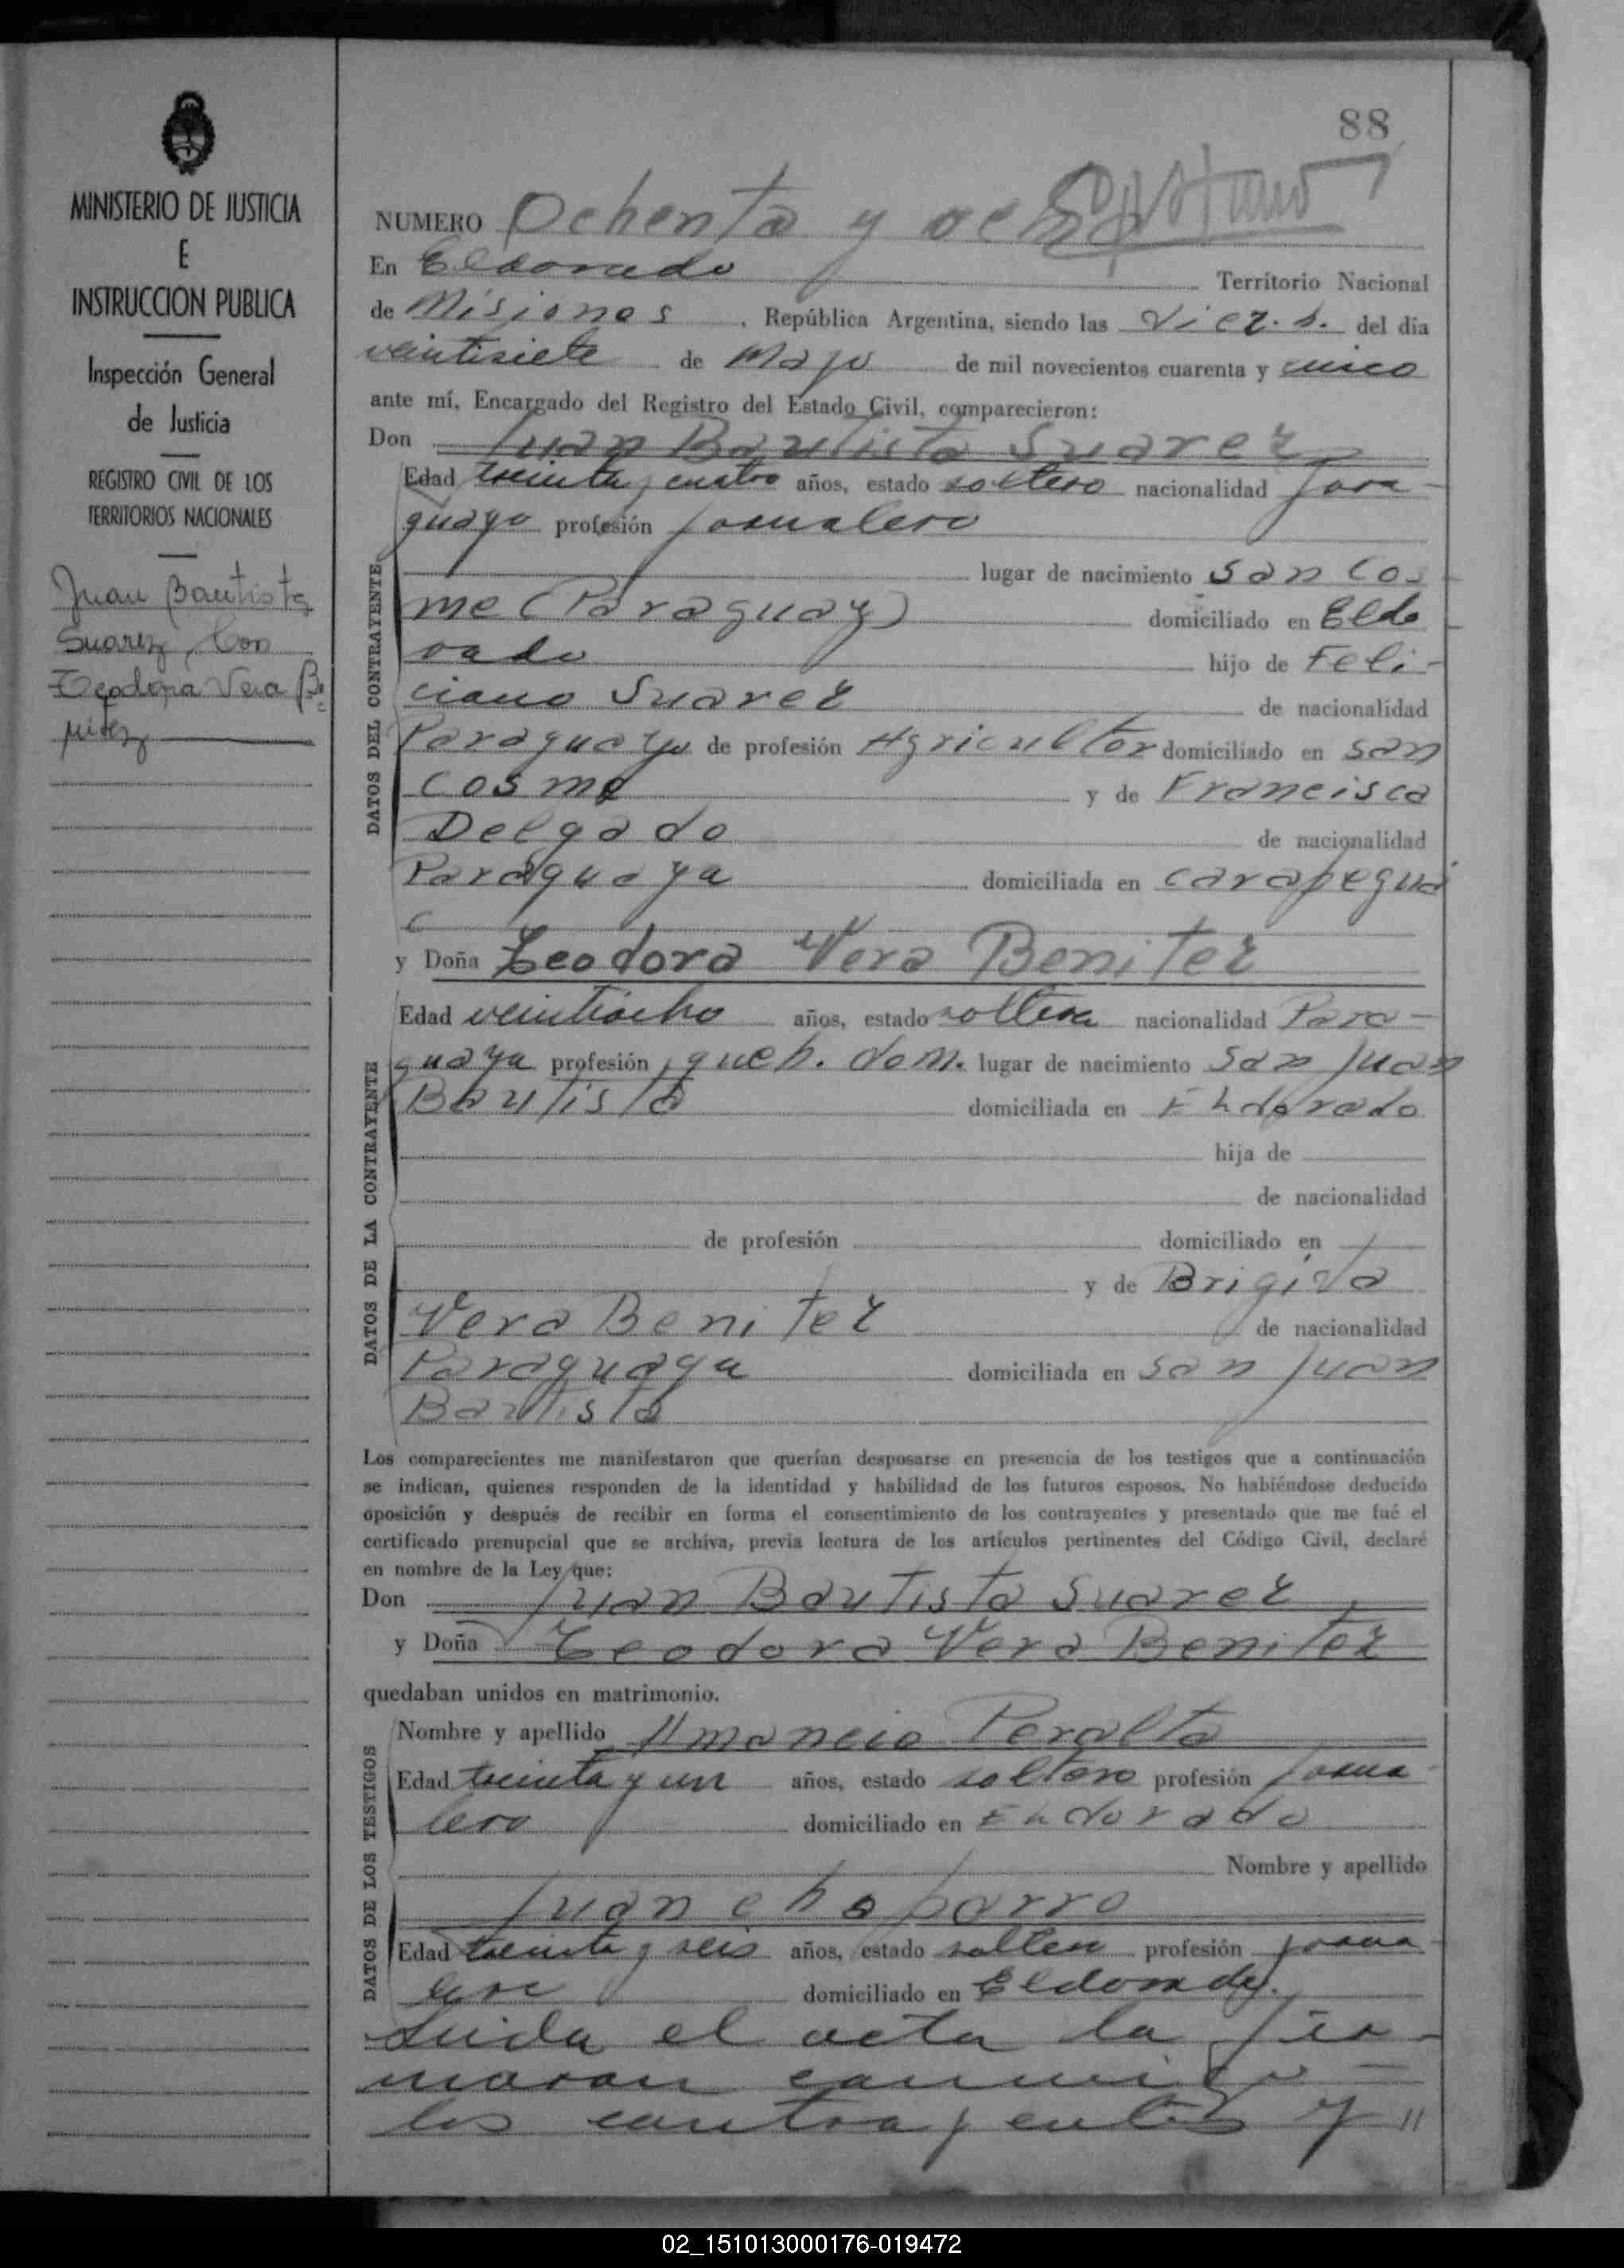 88
MINISTERIO DE JUSTICIA
E
INSTRUCCION PUBLICA
Inspección General
de Justicia
REGISTRO CIVIL DE LOS
TERRITORIOS NACIONALES
Juan Bautista
Suarez, Con
Teodora Vera Be=
nitez
NUMERO Ochenta y ocho
En Eldorado Territorio Nacional
de Misiones, República Argentina, siendo las diez. h. del día
veintisiete de Mayo de mil novecientos cuarenta y cinco
ante mí, Encargado del Registro del Estado Civil, comparecieron:
Don Juan Bautista Suarez
DATOS DEL CONTRAYENTE
Edad treinta y cuatro años, estado soltero nacionalidad Para-
guayo profesión Jornalero
lugar de nacimiento San Cos-
me (Paraguay) domiciliado en Eldo
rado hijo de Feli-
ciano Suarez de nacionalidad
Paraguayo de profesión Agricultor domiciliado en San
Cosme y de Francisca
Delgado de nacionalidad
Paraguaya domiciliada en Carapeguá
y Doña Teodora Vera Benitez
DATOS DE LA CONTRAYENTE
Edad veintiocho años, estado soltera nacionalidad Para-
guaya profesión, queh. dom. lugar de nacimiento San Juan
Bautista domiciliada en Eldorado
hija de
de nacionalidad
de profesión domiciliado en
y de Brigida
Vera Benitez de nacionalidad
Paraguaya domiciliada en San Juan
Bautista
Los comparecientes me manifestaron que querían desposarse en presencia de los testigos que a continuación
se indican, quienes responden de la identidad y habilidad de los futuros esposos. No habiéndose deducido
oposición y después de recibir en forma el consentimiento de los contrayentes y presentado que me fué el
certificado prenupcial que se archiva, previa lectura de los artículos pertinentes del Código Civil, declaré
en nombre de la Ley que:
Don Juan Bautista Suarez
y Doña Teodora Vera Benitez
quedaban unidos en matrimonio.
DATOS DE LOS TESTIGOS
Nombre y apellido Amancio Peralta
Edad treinta y un años, estado soltero profesión Jorna-
lero domiciliado en Eldorado
Nombre y apellido
Juan Chaparro
Edad treinta y seis años, estado soltero profesión jorna-
lero domiciliado en Eldorado.
Leida el acta la fir-
maron conmigo
los contrayentes y "
02_151013000176-019472